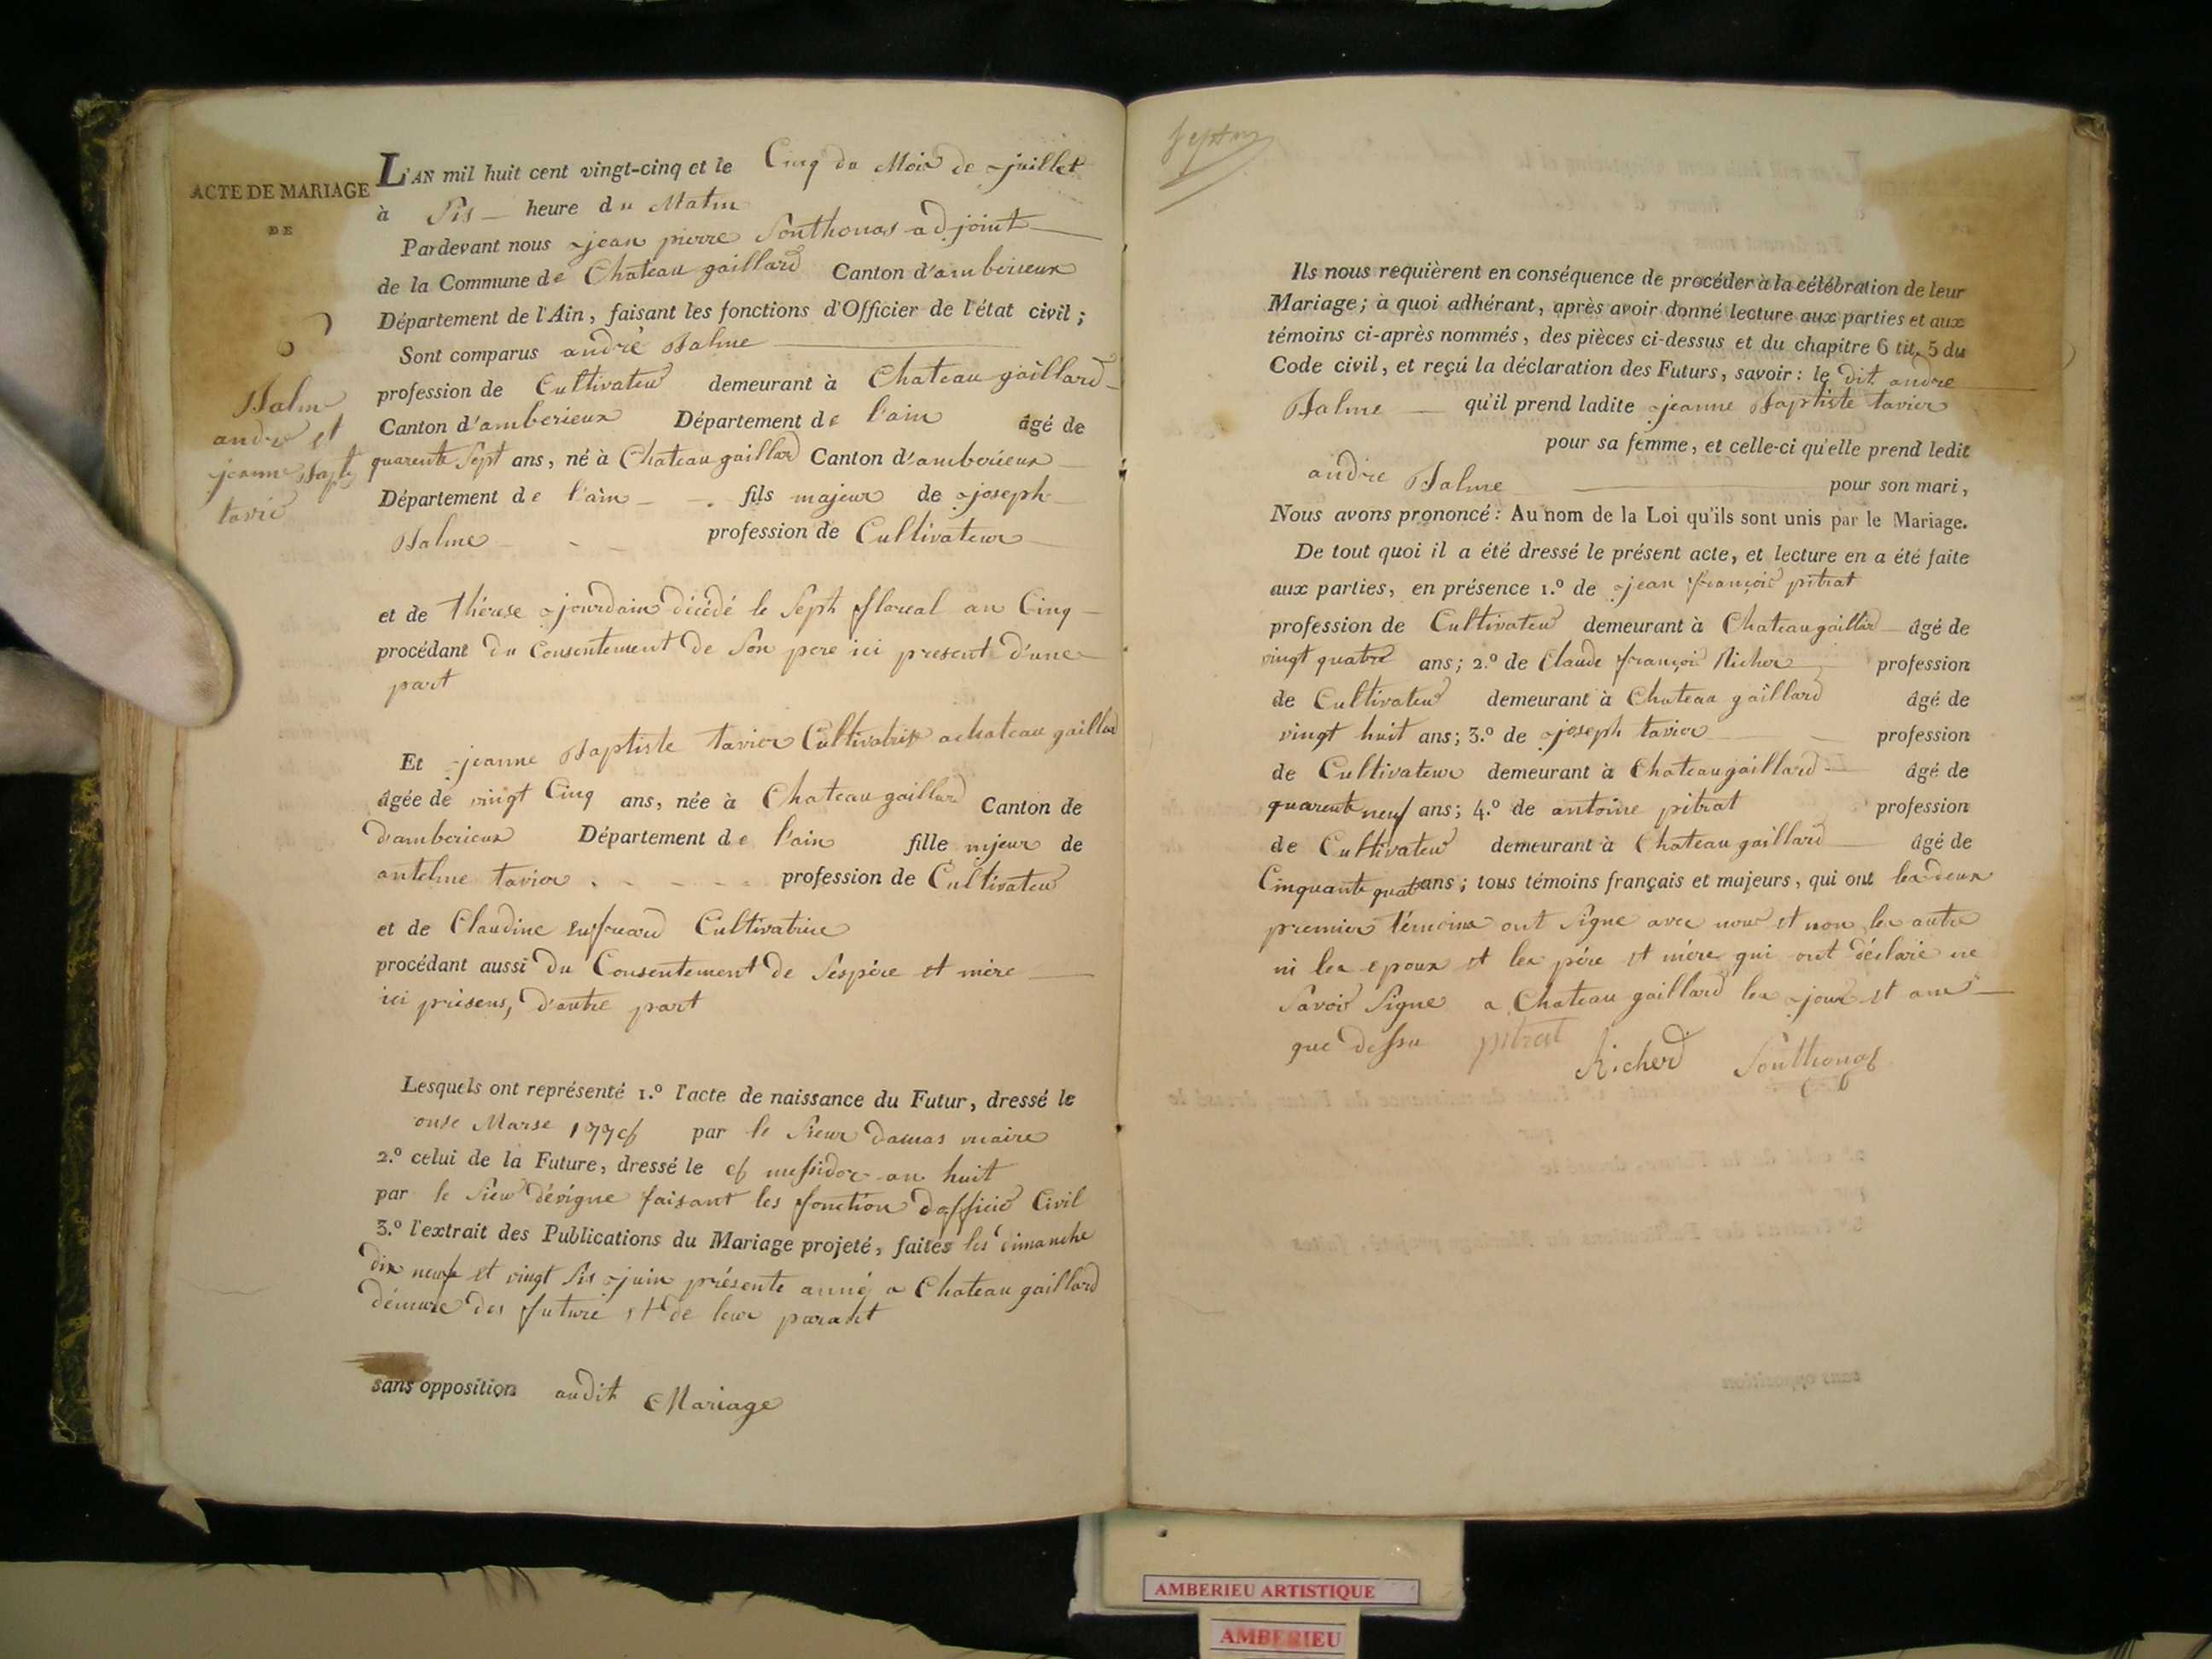 ACTE DE MARIAGE
DE
Balme
andre et
jeanne Bapte
tavié
L'AN mil huit cent vingt-cinq et le Cinq du Mois de juillet
à Sis heure du Matin
Pardevant nous jean pierre Sonthonas adjoint
de la Commune de Chateau gaillard Canton d'amberieux
Département de l'Ain, faisant les fonctions d'Officier de l'état civil;
Sont comparus andré Balme
profession de Cultivateur demeurant à Chateau gaillard
Canton d'amberieux Département de l'ain âgé de
quarente Sept ans, né à Chateau gaillard Canton d'amberieux
Département de l'ain fils majeur de joseph
Balme profession de Cultivateur
et de thérese jourdain décédé le Sept floreal an Cinq
procédant du Consentement de Son pere ici present d'une
part
Et jeanne Baptiste tavier Cultivatrix a chateau gaillard
âgée de vingt Cinq ans, née à Chateau gaillard Canton de
d'amberieux Département de l'ain fille mjeur de
antelme tavier profession de Cultivateur
et de Claudine Cultivatrice
procédant aussi du Consentement de Sespére et mére
ici présens, d'autre part
Lesquels ont représenté 1.º l'acte de naissance du Futur, dressé le
onse Marse 177 par le Sieur damas vicaire
2.º celui de la Future, dressé le messidor an huit
par le Sieur dévigne faisant les fonction dofficié Civil
3.º l'extrait des Publications du Mariage projeté, faites les dimanche
dix neuf et vingt Sis juin présente anné a Chateau gaillard
démure des future et de leur parant
sans opposition audit Mariage
Ils nous requièrent en conséquence de procéder à la célébration de leur
Mariage; à quoi adhérant, après avoir donné lecture aux parties et aux
témoins ci-après nommés, des pièces ci-dessus et du chapitre 6 tit. 5 du
Code civil, et reçu la déclaration des Futurs, savoir: le dit andre
Balme qu'il prend ladite jeanne Baptiste tavier
pour sa femme, et celle-ci qu'elle prend ledit
andre Balme pour son mari,
Nous avons prononcé: Au nom de la Loi qu'ils sont unis par le Mariage.
De tout quoi il a été dressé le présent acte, et lecture en a été faite
aux parties, en présence 1.º de jean françois pitrat
profession de Cultivateur demeurant à Chateau gaillar âgé de
vingt quatre ans; 2.º de Claude françois Richer profession
de Cultivateur demeurant à Chateau gaillard âgé de
vingt huit ans; 3.º de joseph tavier profession
de Cultivateur demeurant à Chateau gaillard âgé de
quarente neuf ans; 4.º de antoine pitrat profession
de Cultivateur demeurant à Chateau gaillard âgé de
Cinquante quatre ans; tous témoins français et majeurs, qui ont les deux
premier témoins ont Signe avec nous et non les autre
ni les epoux et les pére et mére qui ont déclaré ne
Savoir Signe a Chateau gaillard les jour et ans
que dessu pitrat
Richerd Sonthonas
AMBERIEU ARTISTIQUE
AMBERIEU